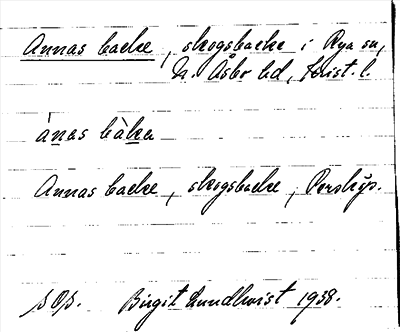 Annas backe, skogsbacke i Rya sn,
N. Åsbo hd, Krist. l.
ànas bàka
Annas backe, skogsbacke, Perstorp.
Birgit Lundkvist 1938.